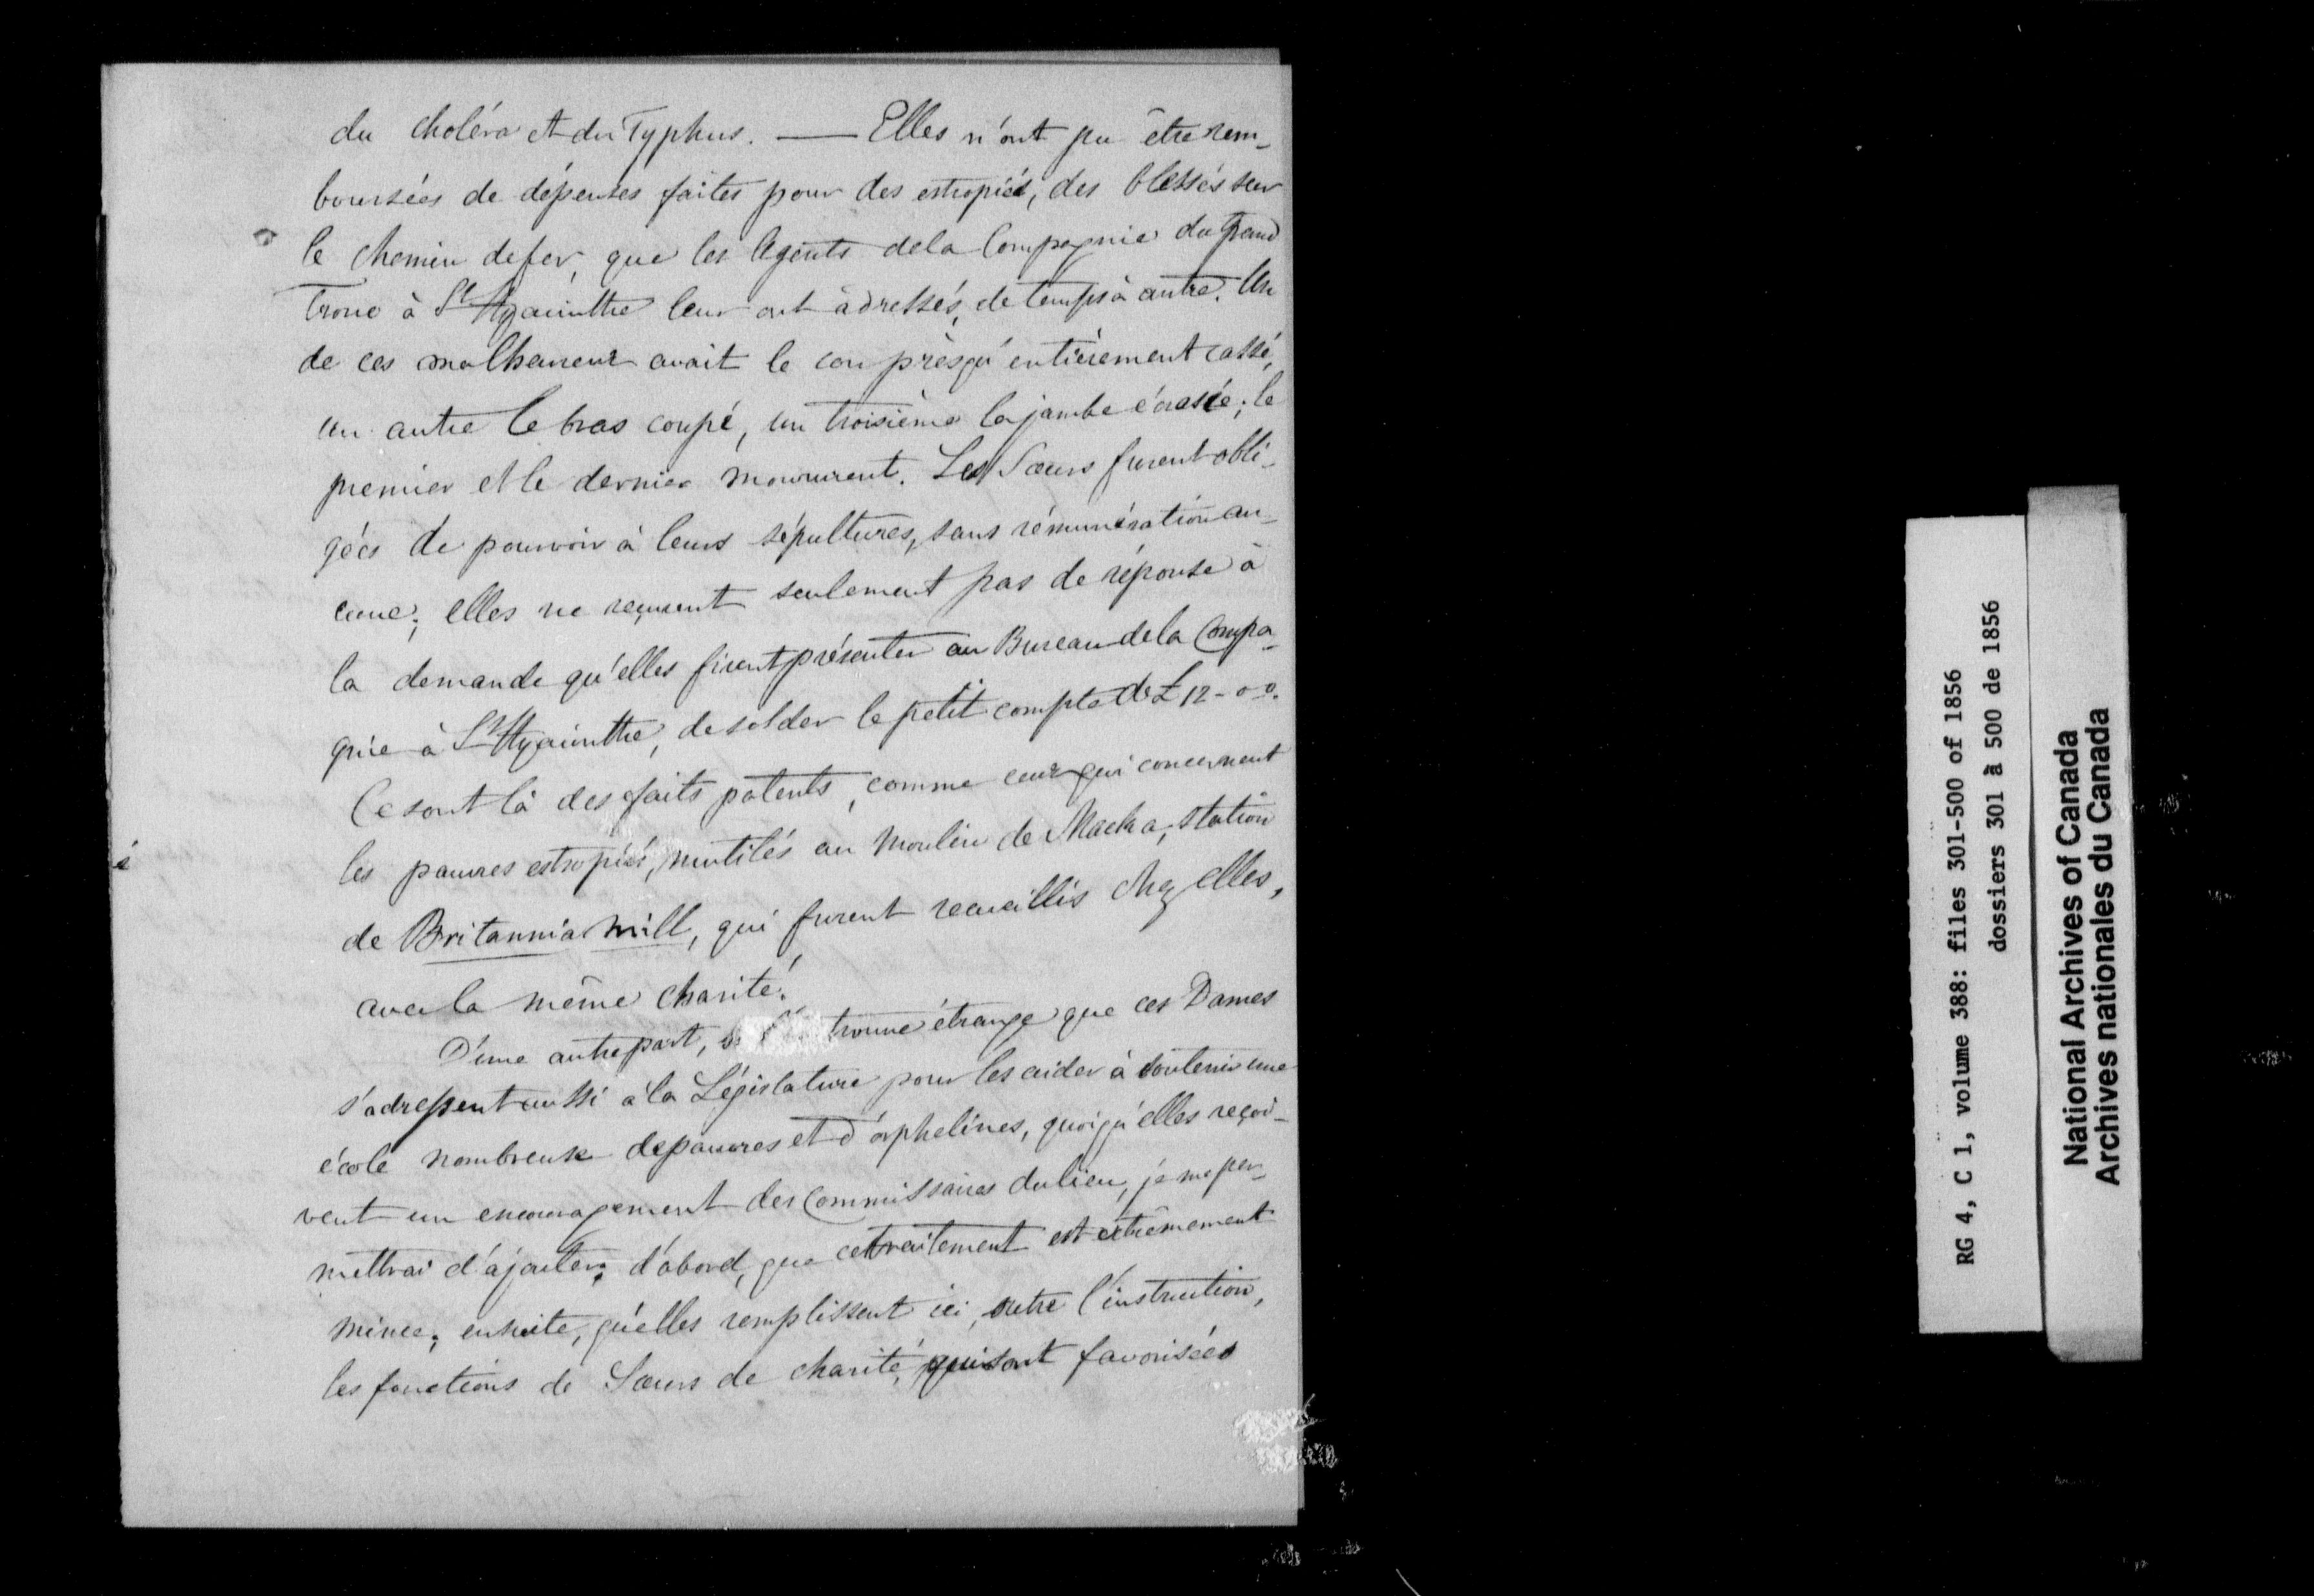 du choléra et du Typhus. — Elles n'ont pu être rem-
boursées de dépenses faites pour des estropiés, des blessés sur
le chemin defer, que les Agents dela Compagnie du grand
Tronc à St Hyacinthe leur ont adressés, de temps à autre. Un
de ces malheureux avait le cou présqu'entièrement cassé,
un autre le bras coupé, un troisième la jambe écrasée; le
premier et le dernier moururent. Les Sœurs furent obli-
gées de pourvoir à leurs sépultures, sans rémunération au-
cune; elles ne reçurent seulement pas de réponse à
la demande qu'elles firent présenter au Bureau dela Compa-
gnie à St Hyacinthe, de solder le petit compte de £ 12-0-0.
Ce sont là des faits patents, comme ceux qui concernent
les pauvres estropiés, mutilés au Moulin de Macka; station
de Britannia Mill, qui furent recueillis chez elles,
avec la même charité.
D'une autre part, trouve étrange que ces Dames
s'adressent aussi à la Législature pour les aider à soutenir une
école nombreuse depauvres et d'orphelines, quoiqu'elles reçoi-
vent un encouragement des Commissaires du lieu, je me per-
mettrai d'ajouter; d'abord, que cetraitement est extrêmement
mince; ensuite, qu'elles remplissent ici, outre l'instruction,
les fonctions de Sœurs de charité, qui sont favorisées
é
RG 4, C 1, volume 388: files 301-500 of 1856
dossiers 301 à 500 de 1856
National Archives of Canada
Archives nationales du Canada